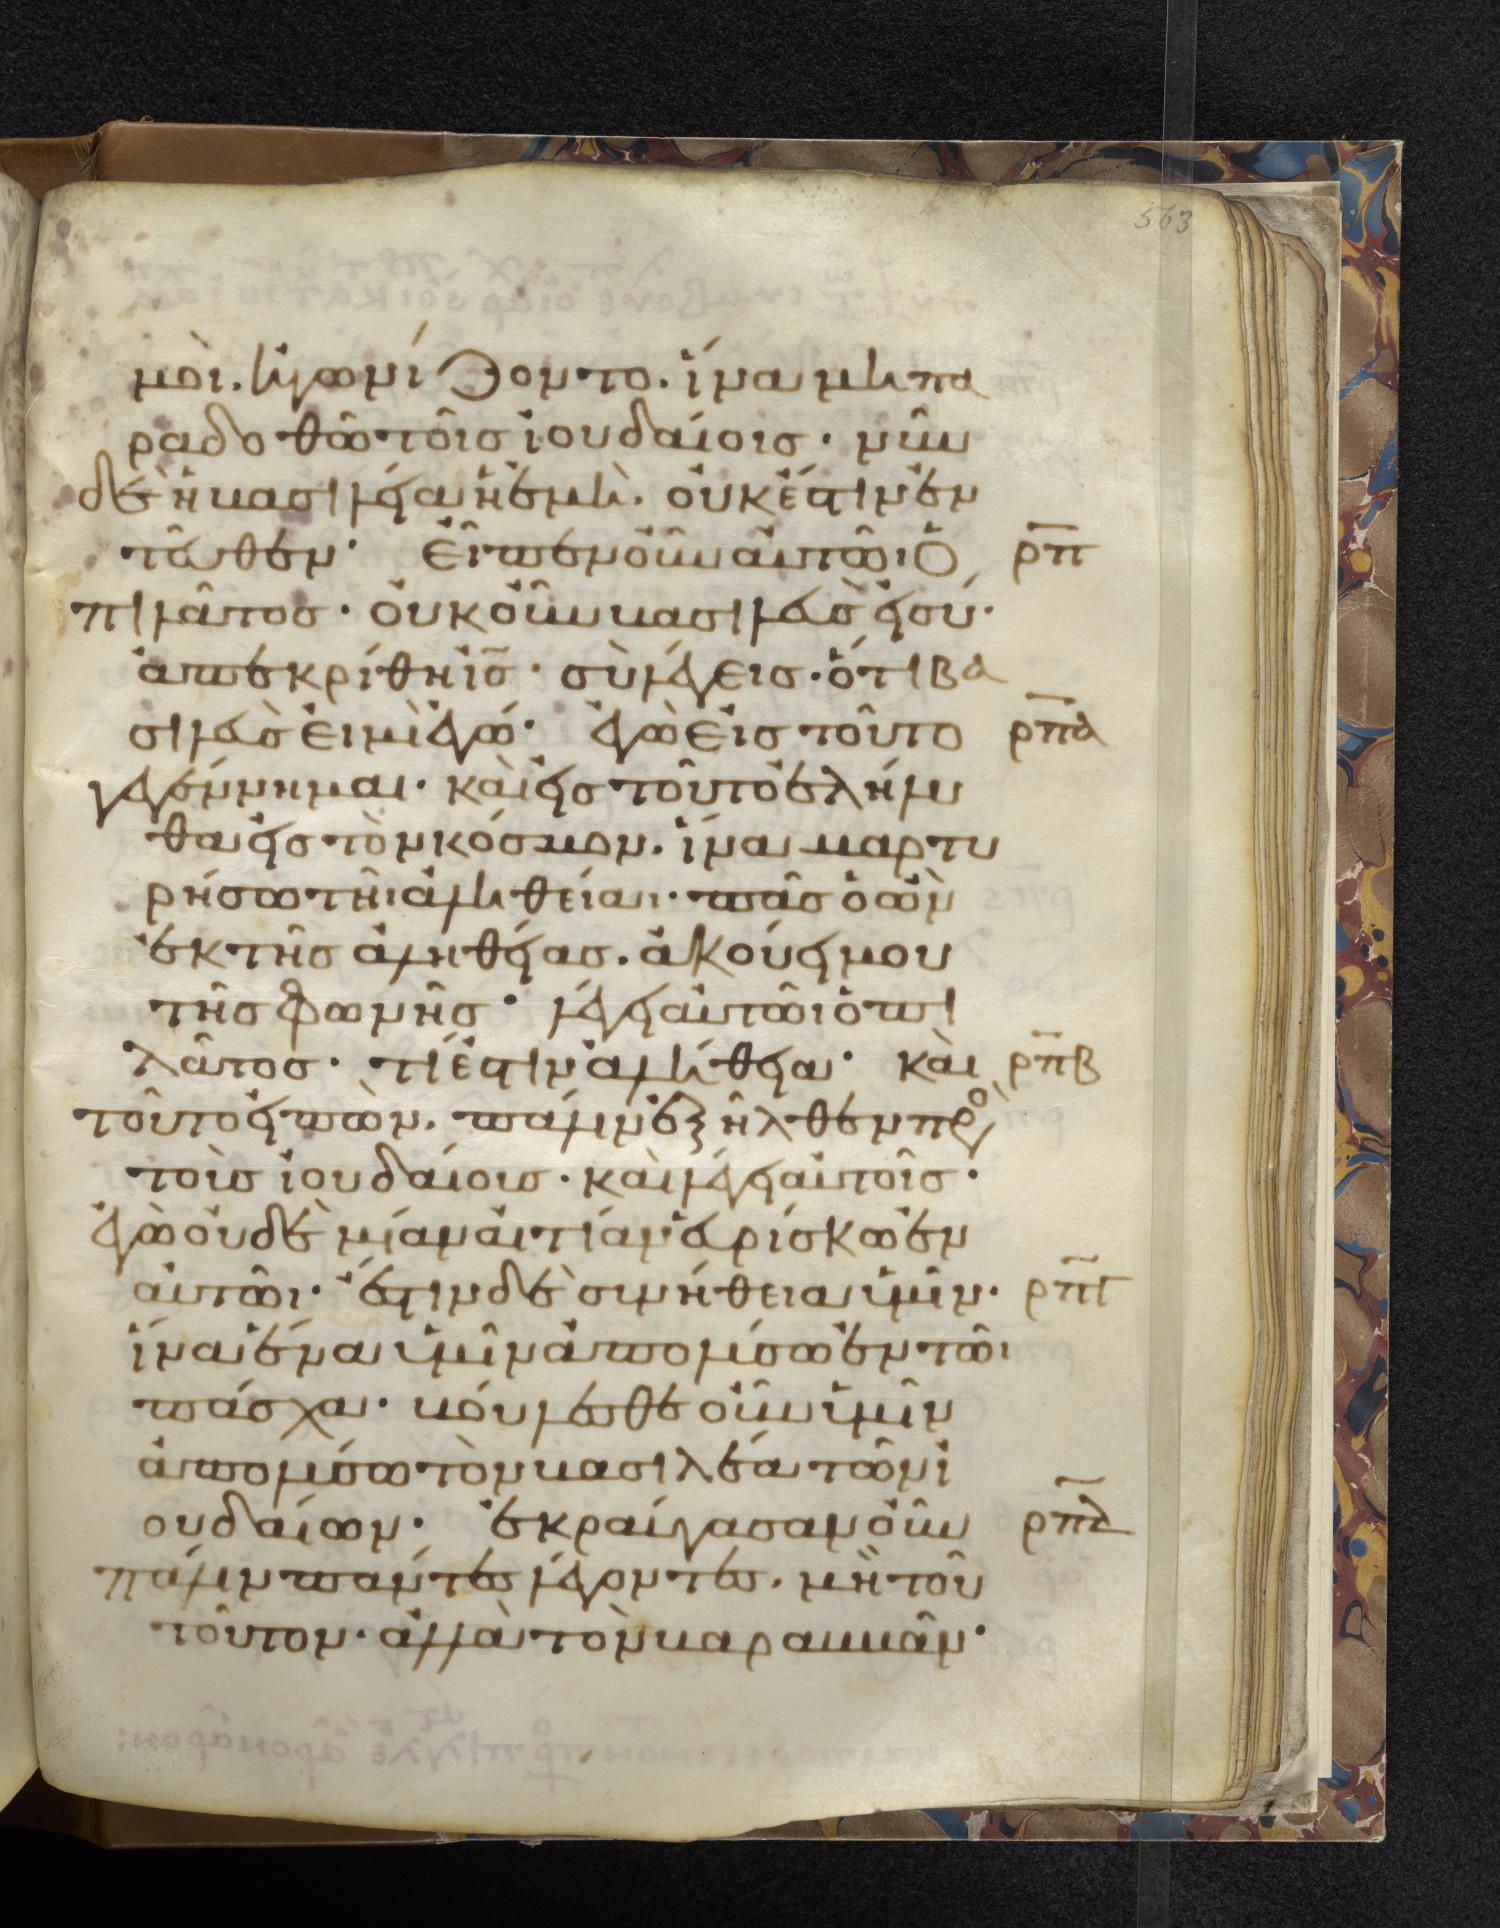 563
μοὶ. ἠγωνίζοντο. ἵνα μὴ πα
ραδοθῶ τοῖς ἰουδαίοις· νῦν
δὲ ἡ βασιλεία ἡ ἐμὴ. οὐκ ἔστιν ἐν
τεῦθεν· εἶπεν οὖν αὐτῶι ὁ ρ̅π̅
πιλᾶτος· οὐκοῦν βασιλεὺς εἶ σύ·
ἀπεκρίθη ἰ̅ς̅· σὺ λέγεις· ὅτι βα
σιλεὺς εἰμὶ ἐγώ· ἐγὼ εἰς τοῦτο ρ̅π̅α̅
γεγέννημαι· καὶ εἰς τοῦτο ἐλήλυ
θα εἰς τὸν κόσμον. ἵνα μαρτυ
ρήσω τῆι ἀληθείαι· πᾶς ὁ ὢν
ἐκ τῆς ἀληθείας. ἀκούει μου
τῆς φωνῆς· λέγει αὐτῶι ὁ πι
λᾶτος· τί ἐστιν ἀλήθεια· καὶ ρ̅π̅β̅
τοῦτο εἰπὼν. πάλιν ἐξῆλθεν πρὸ
τοὺς ἰουδαίους· καὶ λέγει αὐτοῖς·
ἐγὼ οὐδὲ μίαν αἰτίαν εὑρίσκω ἐν
αὐτῶι· ἔστιν δὲ συνήθεια ὑμῖν· ρ̅π̅γ̅
ἵνα ἕνα ὑμῖν ἀπολύσω ἐν τῶι
πάσχα· βούλεσθε οὖν ὑμῖν
ἀπολύσω τὸν βασιλέα τῶν ἰ
ουδαίων· ἐκραύγασαν οὖν ρ̅π̅δ̅
πάλιν πάντες λέγοντες. μὴ τοῦ
τοῦτον· ἀλλὰ τὸν βαραββᾶν·